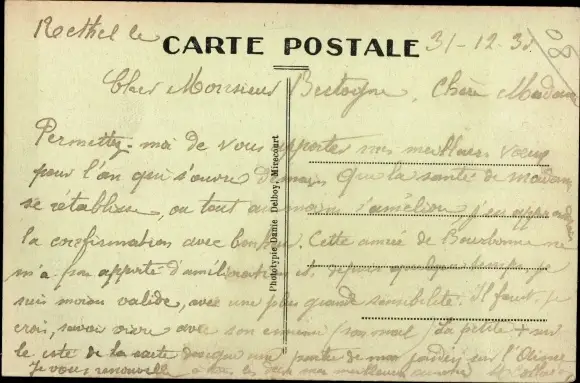 Rethel le
31-12-3
CARTE POSTALE
Cher Monsieur Bretogne, Chère Madame
Permettez-moi de vous apporter mes meilleurs vœux
pour l'an qui s'ouvre demain que la santé de madame
se rétablisse, ou tout au moins s'améliore j'en apprendrai
la confirmation avec bonheur. Cette année de Bourbonne ne
m'a pas apporté d'amélioration et depuis quelque temps je
suis moins valide, avec une plus grande sensibilité. Il faut, je
crois, savoir vivre avec son ennemi/son mal/La petite + sur
le côté de la carte désigne une partie de mon jardin sur l'
Je vous renouvelle à tous les deux mes meilleurs
Phototypie Daniel Delboy, Mirecourt